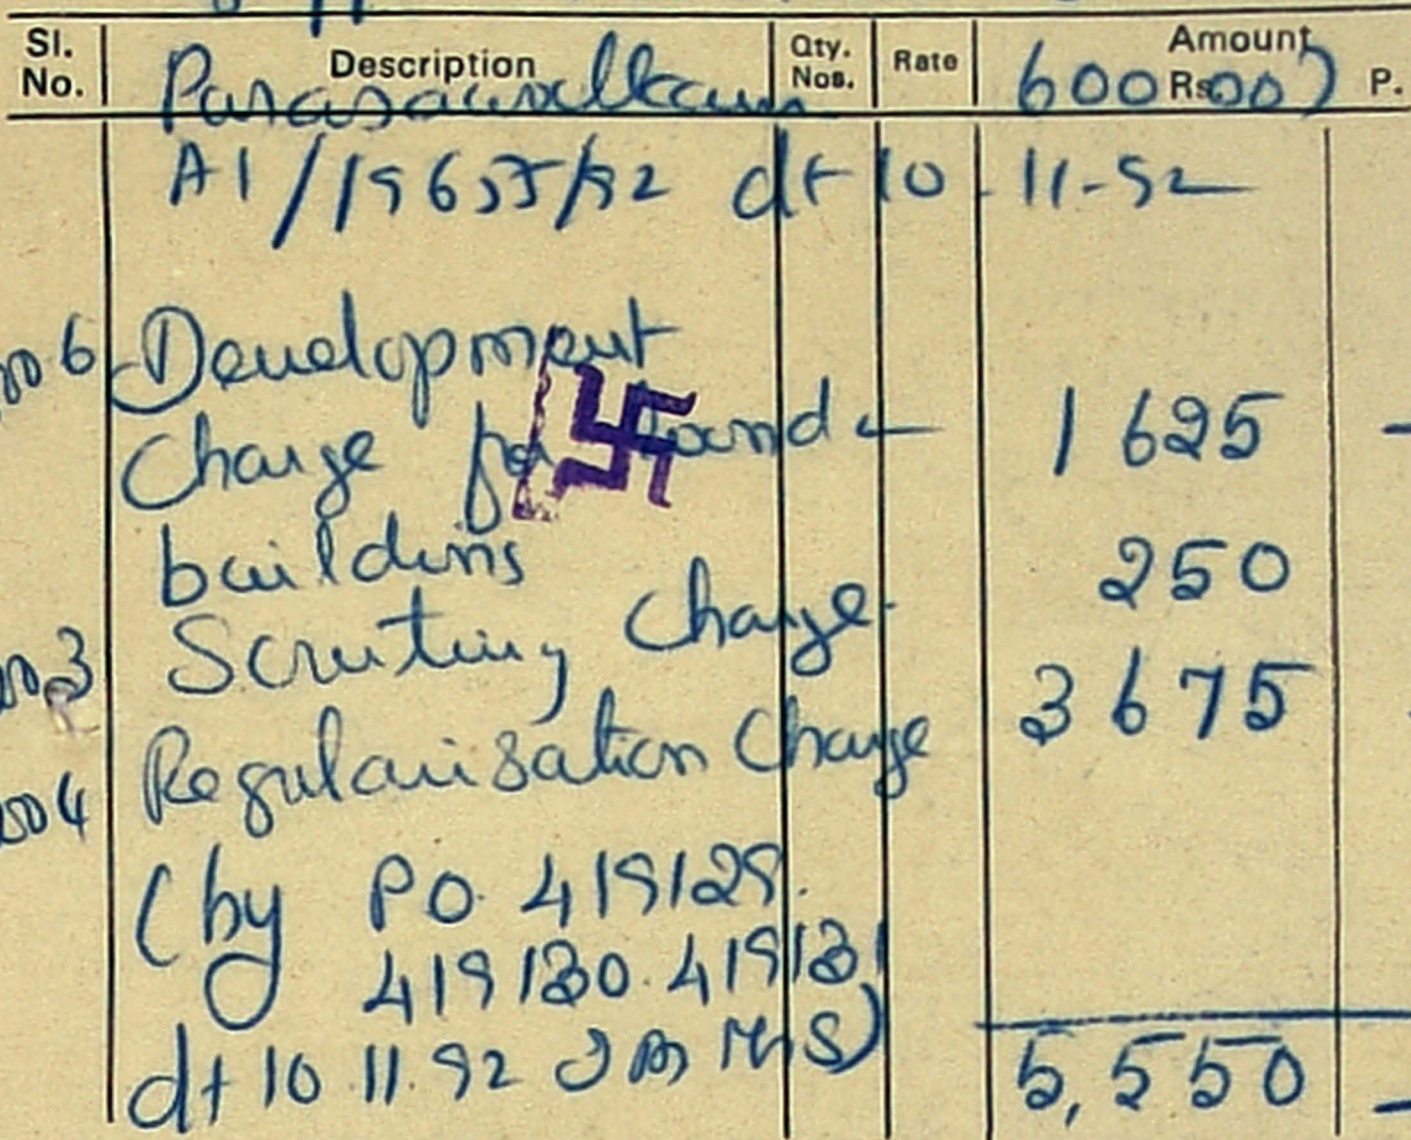 Sl. No. Description Qty. Nos. Rate Amount Rs. P.
Purasawalkam 600 007)
A1/19655/92 dt 10-11-92
no 6 Development
Charge for land & 1625 -
building 250
Scrutiny Charge
no 3 3675
Regularisation Charge
no 4
(by PO. 419129.
419130. 419131
dt 10.11.92 MS)
5,550 -